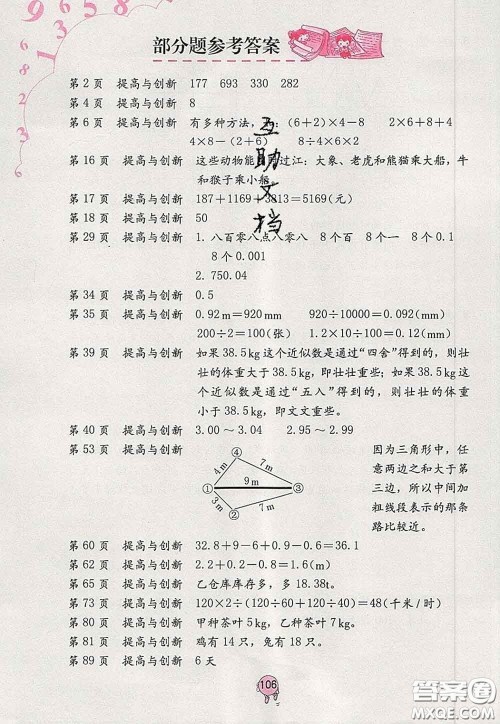 部分题参考答案
第2页 提高与创新 177 693 330 282
第4页 提高与创新 8
第6页 提高与创新 有多种方法, :(6+2)×4-8 2×6+8+4
4×8-(2+6) 8÷4×6×2
第16页 提高与创新 这些动物能 过江:大象、老虎和熊猫乘大船,牛
和猴子乘小船。
第17页 提高与创新 187+1169+3813=5169(元)
第18页 提高与创新 50
第29页 提高与创新 1. 八百零八点八零八 8个百 8个一 8个0.1
8个0.001
2. 750.04
第34页 提高与创新 0.5
第35页 提高与创新 0.92m=920mm 920÷10000=0.092(mm)
200÷2=100(张) 1.2×10÷100=0.12(mm)
第39页 提高与创新 如果38.5kg这个近似数是通过“四舍”得到的,则壮
壮的体重大于38.5kg,即壮壮重些;如果38.5kg这
个近似数是通过“五入”得到的,则壮壮的体重
小于38.5kg,即文文重些。
第40页 提高与创新 3.00~3.04 2.95~2.99
第53页 提高与创新
④
4m 7m
① 9m ③
3m 7m
②
因为三角形中,任
意两边之和大于第
三边,所以中间加
粗线段表示的那条
路比较近。
第60页 提高与创新 32.8+9-6+0.9-0.6=36.1
第62页 提高与创新 2.2+0.2-0.8=1.6(m)
第65页 提高与创新 乙仓库库存多,多18.38t。
第73页 提高与创新 120×2÷(120÷60+120÷40)=48(千米/时)
第80页 提高与创新 甲种茶叶5kg,乙种茶叶7kg。
第81页 提高与创新 鸡有14只,兔有18只。
第89页 提高与创新 6天
106
互助文档
答案圈
MXQE.COM